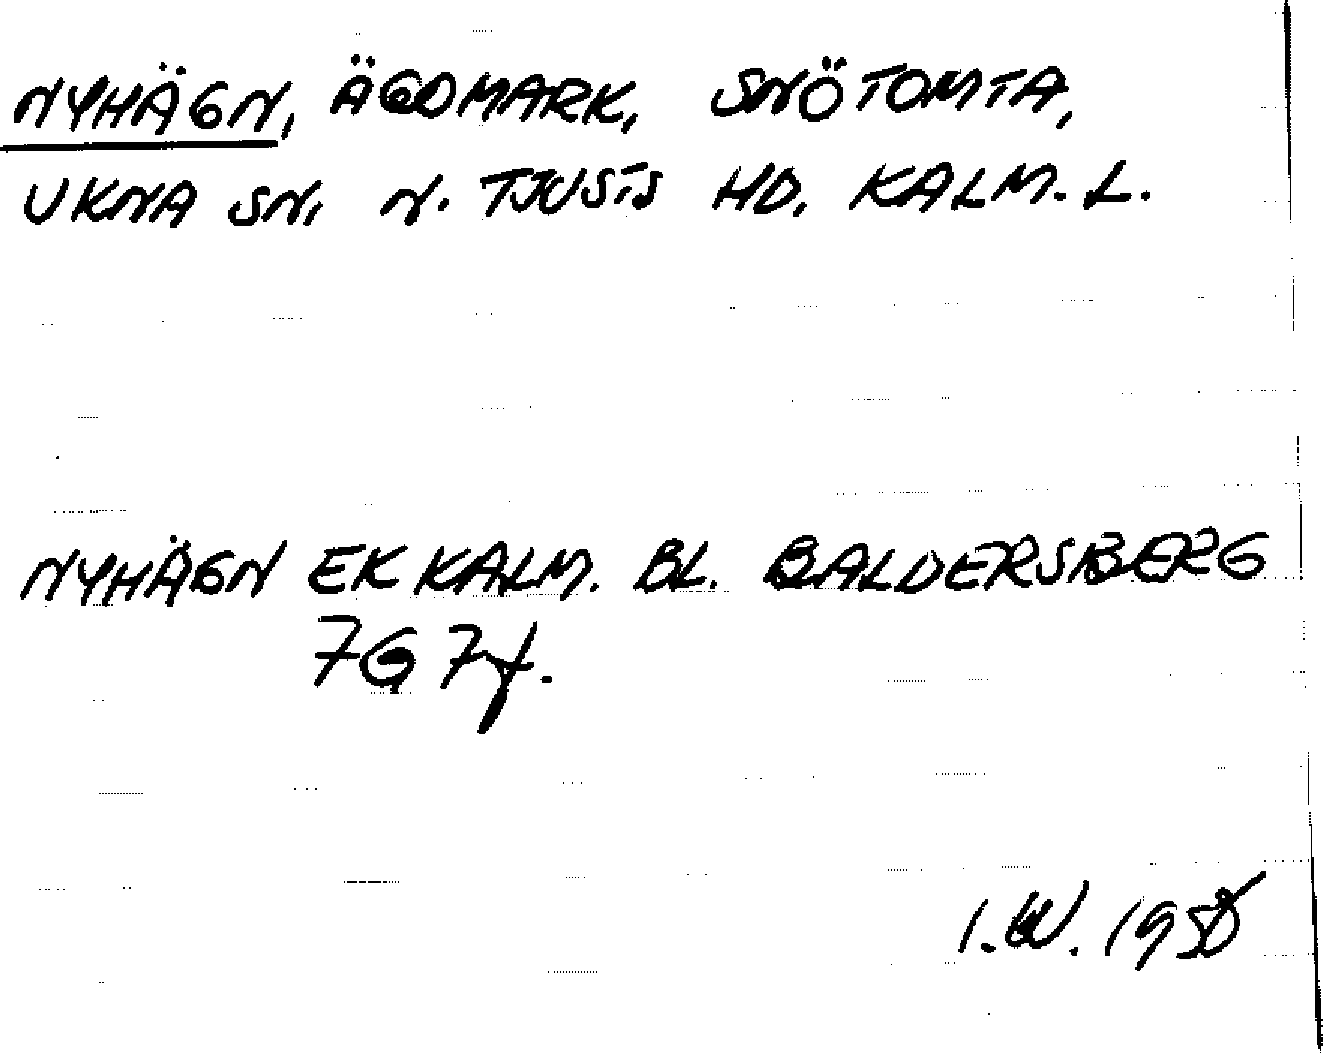 NYHÄGN, ÄGOMARK, SNÖTOMTA,
UKNA SN, N. TJUSTS HD, KALM. L.
NYHÄGN EK KALM. BL. BALDERSBERG
7G 7f.
I.W. 1950